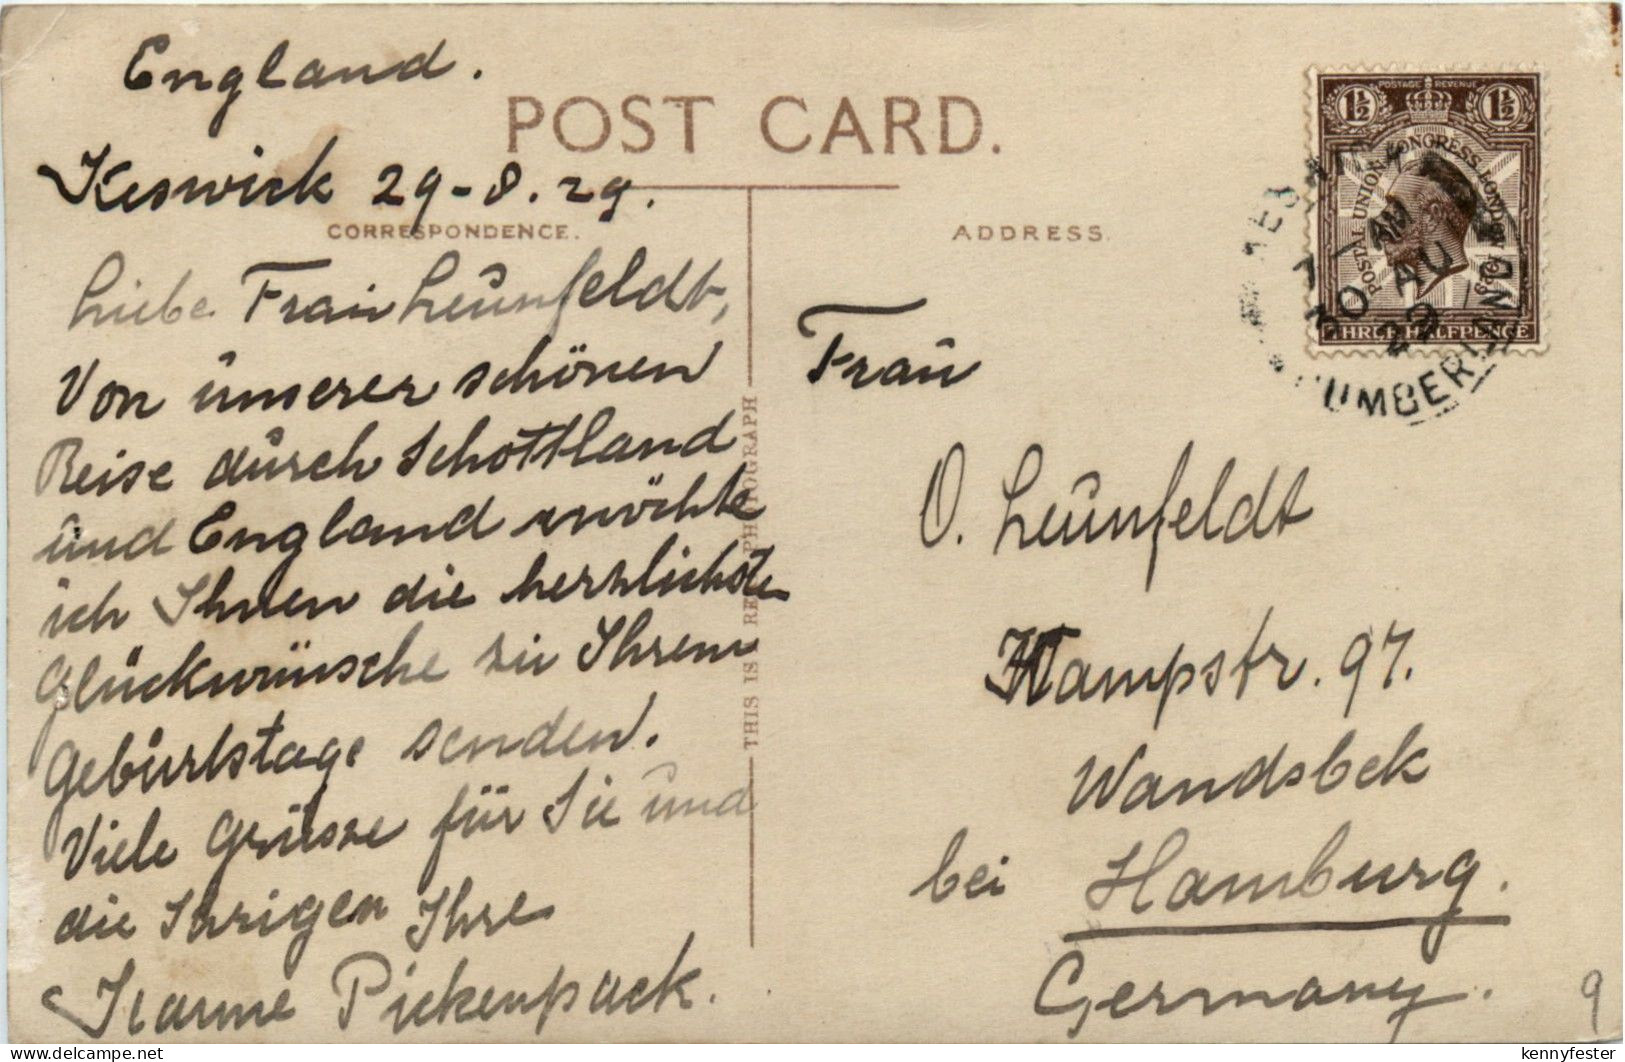 England.
POST CARD.
Keswick 29-8.29.
CORRESPONDENCE.
Liebe Frau Leunfeldt,
Von unserer schönen
Reise durch Schottland
und England möchte
ich Ihnen die herzlichsten
Glückwünsche zu Ihrem
Geburtstage senden.
Viele Grüsse für Sie und
die Ihrigen Ihre
Pickenpack.
THIS IS A REAL PHOTOGRAPH
ADDRESS.
POSTAGE REVENUE
1½ 1½
POSTAL UNION CONGRESS LONDON 1929
THREE HALFPENCE
AM
30 AU
29
CUMBERLAND
Frau
O. Leunfeldt
Kampstr. 97.
Wandsbek
bei Hamburg.
Germany.
9
kennyfester